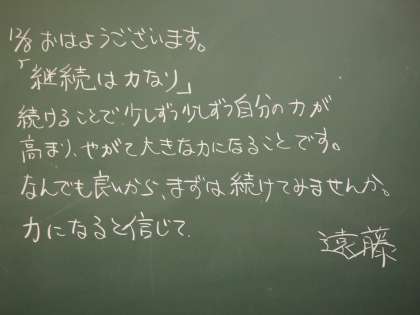 12/8 おはようございます。
「継続は力なり」
続けることで少しずつ少しずつ自分の力が
高まり、やがて大きな力になることです。
なんでも良いから、まずは続けてみませんか。
力になると信じて。
遠藤